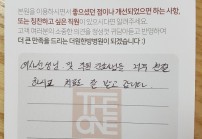 본원을 이용하시면서 좋으셨던 점이나 개선되었으면 하는 사항,
또는 칭찬하고 싶은 직원이 있으시다면 알려주세요.
고객 여러분의 소중한 의견을 정성껏 귀담아듣고 반영하여
더 큰 만족을 드리는 더원한방병원이 되겠습니다 :)
및 간호사님들 너무 친절
하시고 치료도 잘 받고 갑니다
THE
ONE